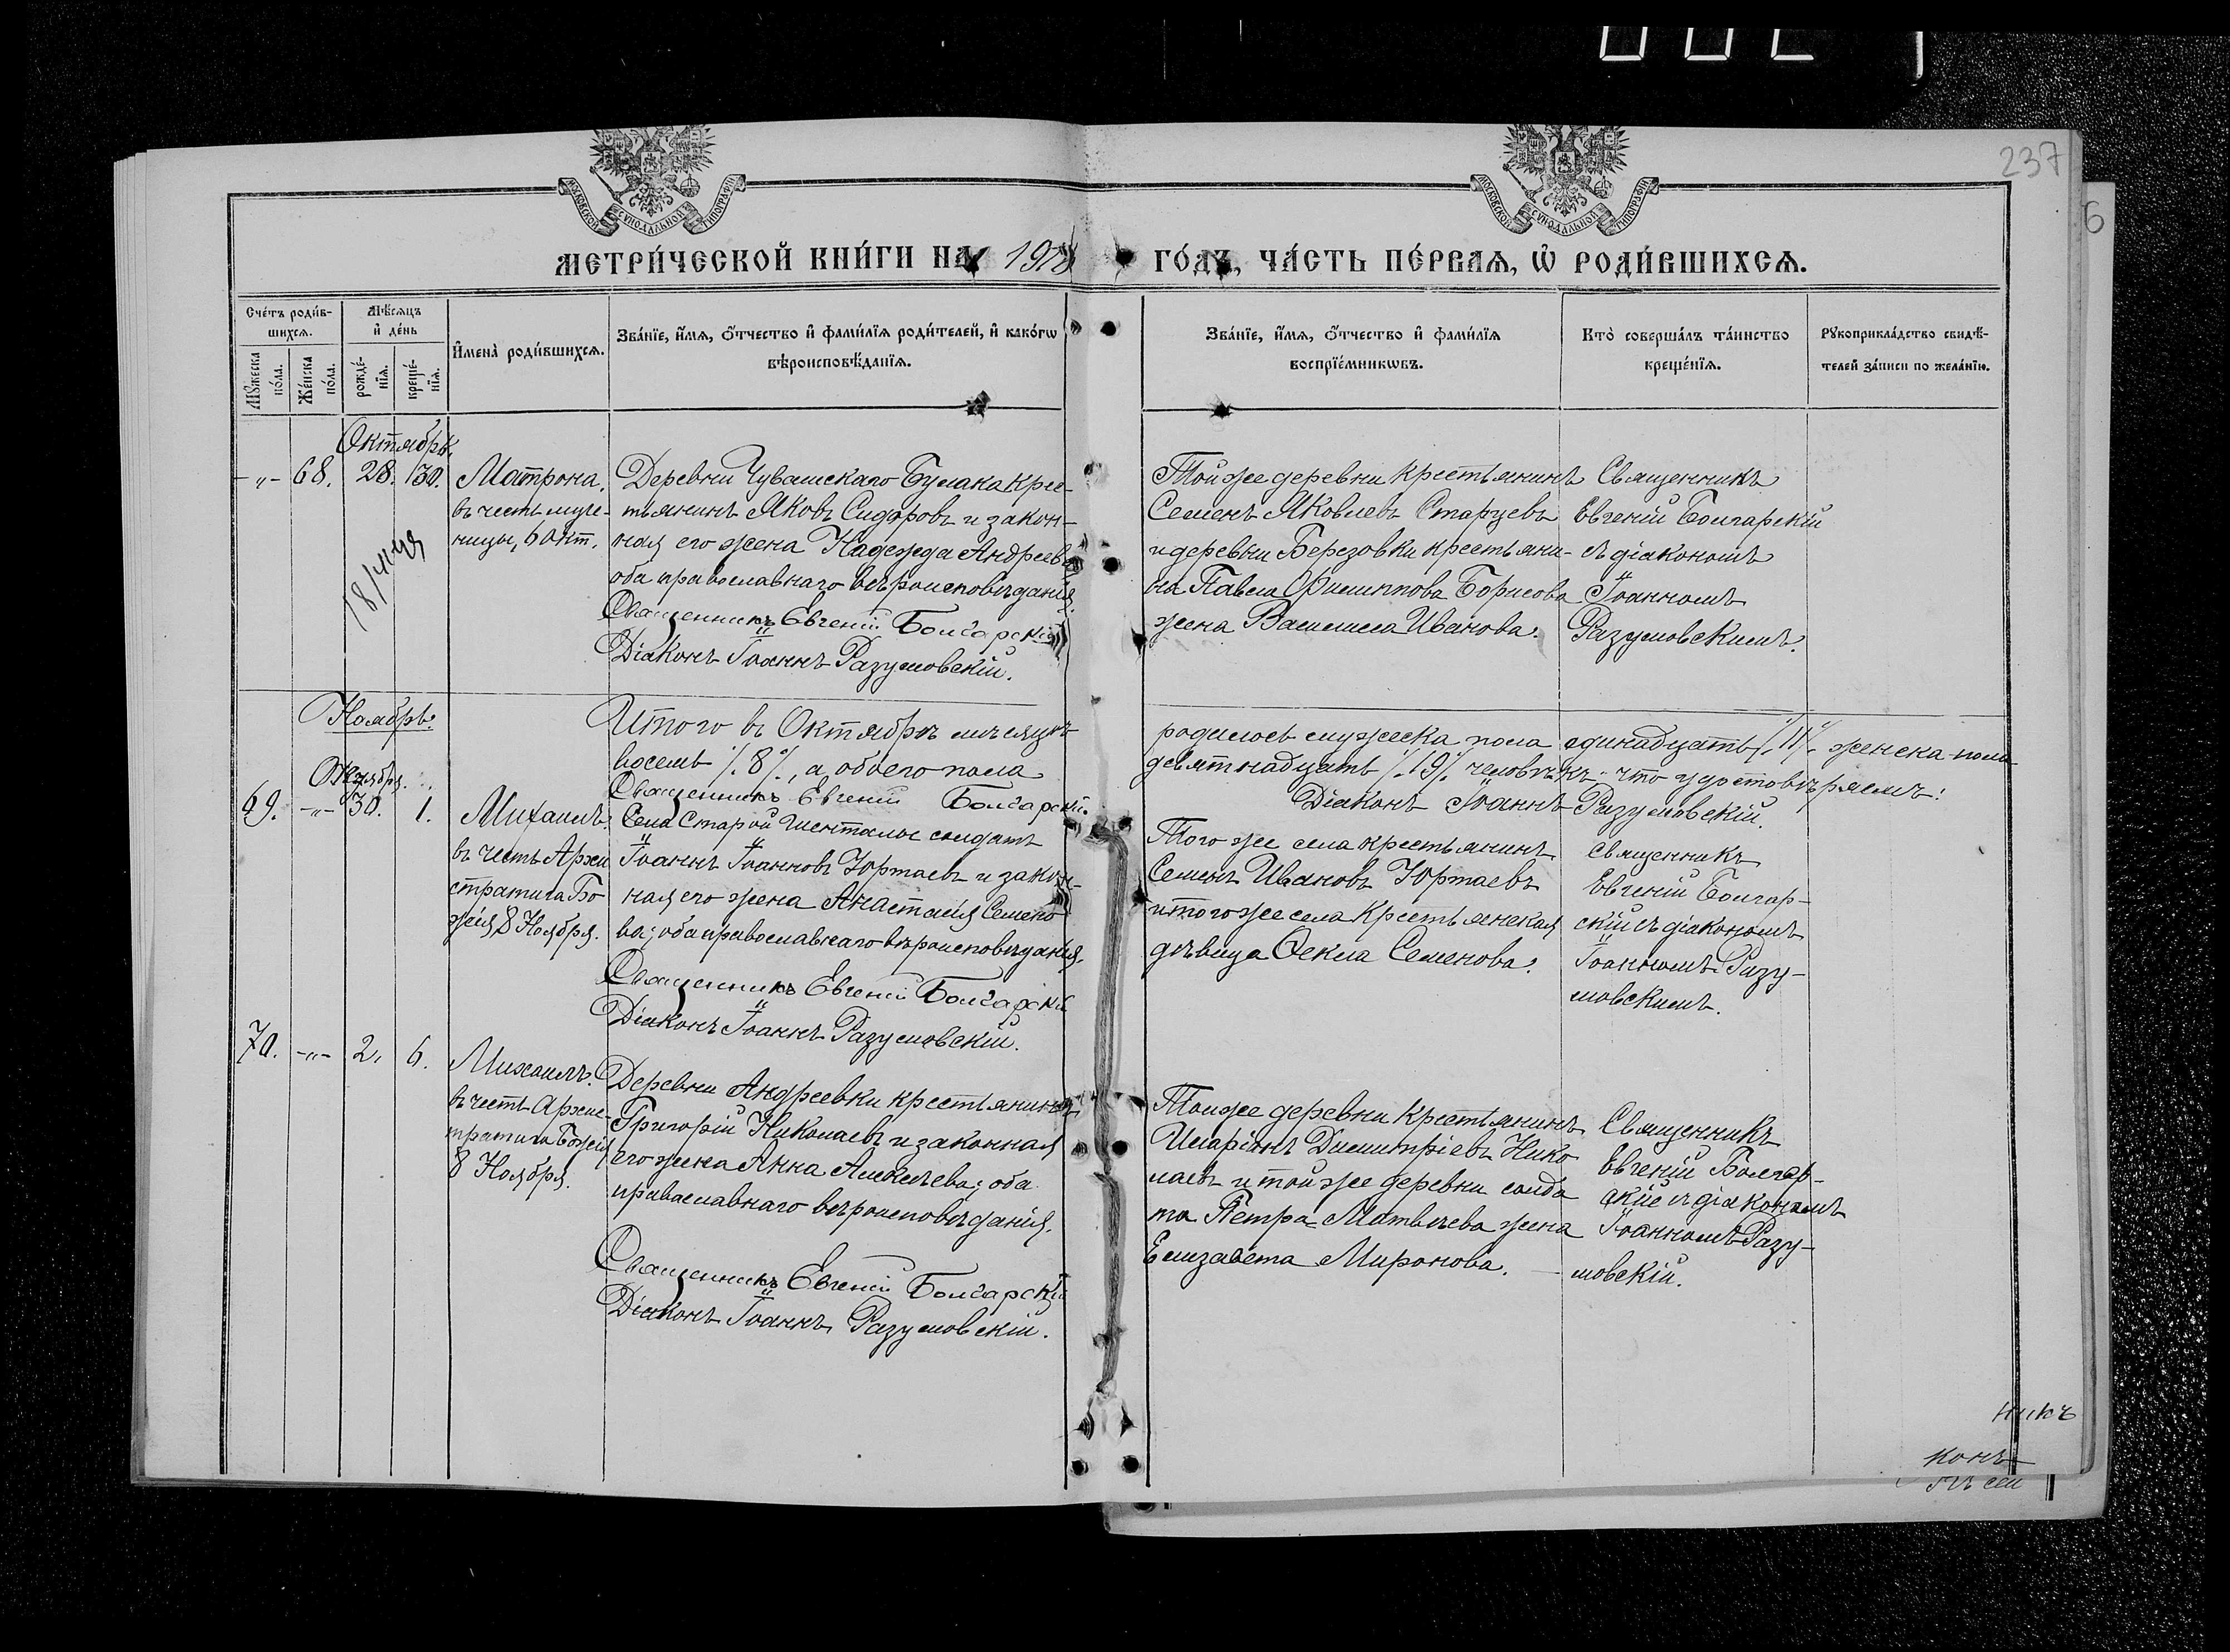 237
6
МОСКОВСКОЙ СѴНОДАЛЬНОЙ ТИПОГРАФІИ
МОСКОВСКОЙ СѴНОДАЛЬНОЙ ТИПОГРАФІИ
МЕТРИ́ЧЕСКОЙ КНИ́ГИ НА 1912 ГО́ДЪ, ЧА́СТЬ ПЕ́РВАѦ, Ѡ҆ РОДИ́ВШИХСѦ.
Сче́тъ роди́в-
шихсѧ.
Мѣ́сѧцъ
и҆ де́нь
Мꙋ́жеска
по́ла.
Же́нска
по́ла.
рожде́-
нїѧ.
креще́-
нїѧ.
И҆мена̀ роди́вшихсѧ.
Зва́нїе, и҆́мѧ, ѻ҆́тчество и҆ фами́лїѧ роди́телей, и҆ како́гѡ
вѣроисповѣ́данїѧ.
Зва́нїе, и҆́мѧ, ѻ҆́тчество и҆ фами́лїѧ
воспрїе́мникѡвъ.
Кто̀ соверша́лъ та́инство
креще́нїѧ.
Рꙋкоприкла́дство свидѣ́-
телей за́писи по жела́нїю.
Октябрь.
-„- 68. 28. 30.
Матрона,
въ честь муче-
ницы, 6 Окт.
Деревни Чувашскаго Булака крес-
тьянинъ Яковъ Сидоровъ и закон-
ная его жена Надежда Андреева
оба православнаго вѣроисповѣданія.
Священникъ Евгеній Болгарскій
Діаконъ Іоаннъ Разумовскій.
Той же деревни крестьянинъ
Семенъ Яковлевъ Старцевъ
и деревни Березовки крестьяни-
на Павла Филиппова Борисова
жена Васьлиса Иванова.
Священникъ
Евгеній Болгарскій
съ діакономъ
Іоанномъ
Разумовскимъ.
Ноябрь.
Итого въ Октябрѣ мѣсяцѣ родилось мужеска пола одинадцать /. 11 /. женска пола
восемь /. 8 /., а обоего пола девятнадцать /. 19 /. человѣкъ; что удостовѣряемъ:
Священникъ Евгеній Болгарскій. Діаконъ Іоаннъ Разумовскій.
Октября.
69. -„- 30. 1.
Михаилъ.
въ честь Архи
стратига Бо-
жія, 8 Ноября.
Села Старой солдатъ
Іоаннъ Іоанновъ Юртаевъ и закон-
ная его жена Анастасія Семено
ва; оба православнаго вѣроисповѣданія.
Священникъ Евгеній Болгарскій
Діаконъ Іоаннъ Разумовскій.
Того же села крестьянинъ
Семенъ Ивановъ Юртаевъ
и того же села крестьянская
дѣвица Ѳекла Семенова.
Священникъ
Евгеній Болгар-
скій съ діакономъ
Іоанномъ Разу-
мовскимъ.
70. -„- 2. 6.
Михаилъ.
въ честь Архис-
тратига Божія
8 Ноября.
Деревни Андреевки крестьянинъ
Григорій Николаевъ и законная
его жена Анна Алексѣева; оба
православнаго вѣроисповѣданія.
Священникъ Евгеній Болгарскій
Діаконъ Іоаннъ Разумовскій.
Той же деревни крестьянинъ
Иларіонъ Димитріевъ Нико
лаевъ и той же деревни солда
та Петра Матвѣева жена
Елизавета Миронова.
Священникъ
Евгеній Болгар-
скій съ діакономъ
Іоанномъ Разу-
мовскій.
никъ
конъ